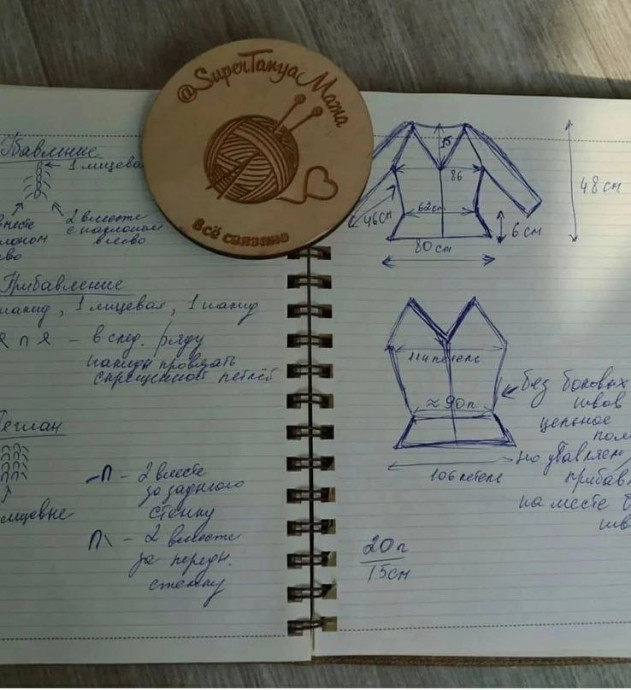 @SuperTanyaMama
всё связано
Убавление
1 лицевая
2 вместе
с наклоном
влево
Прибавление
накид, 1 лицевая, 1 накид
– в след. ряду
накиды провязать
скрещенной петлёй
Реглан
лицевые
– 2 вместе
за заднюю
стенку
– 2 вместе
за передн.
стенку
15
86
48 см
46 см
62 см
6 см
80 см
114 петель
≈ 90 п
без боковых
швов
цельное
106 петель
но убавляем
прибав
на месте б
шв
20 п
15 см